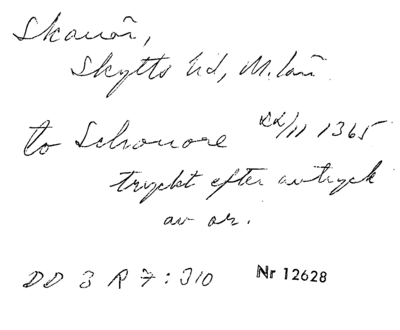 Skanör,
Skytts hd, M. län
to Schonore 22/11 1365
tryckt efter avtryck
av or.
DD 3 R 7 : 310 Nr 12628